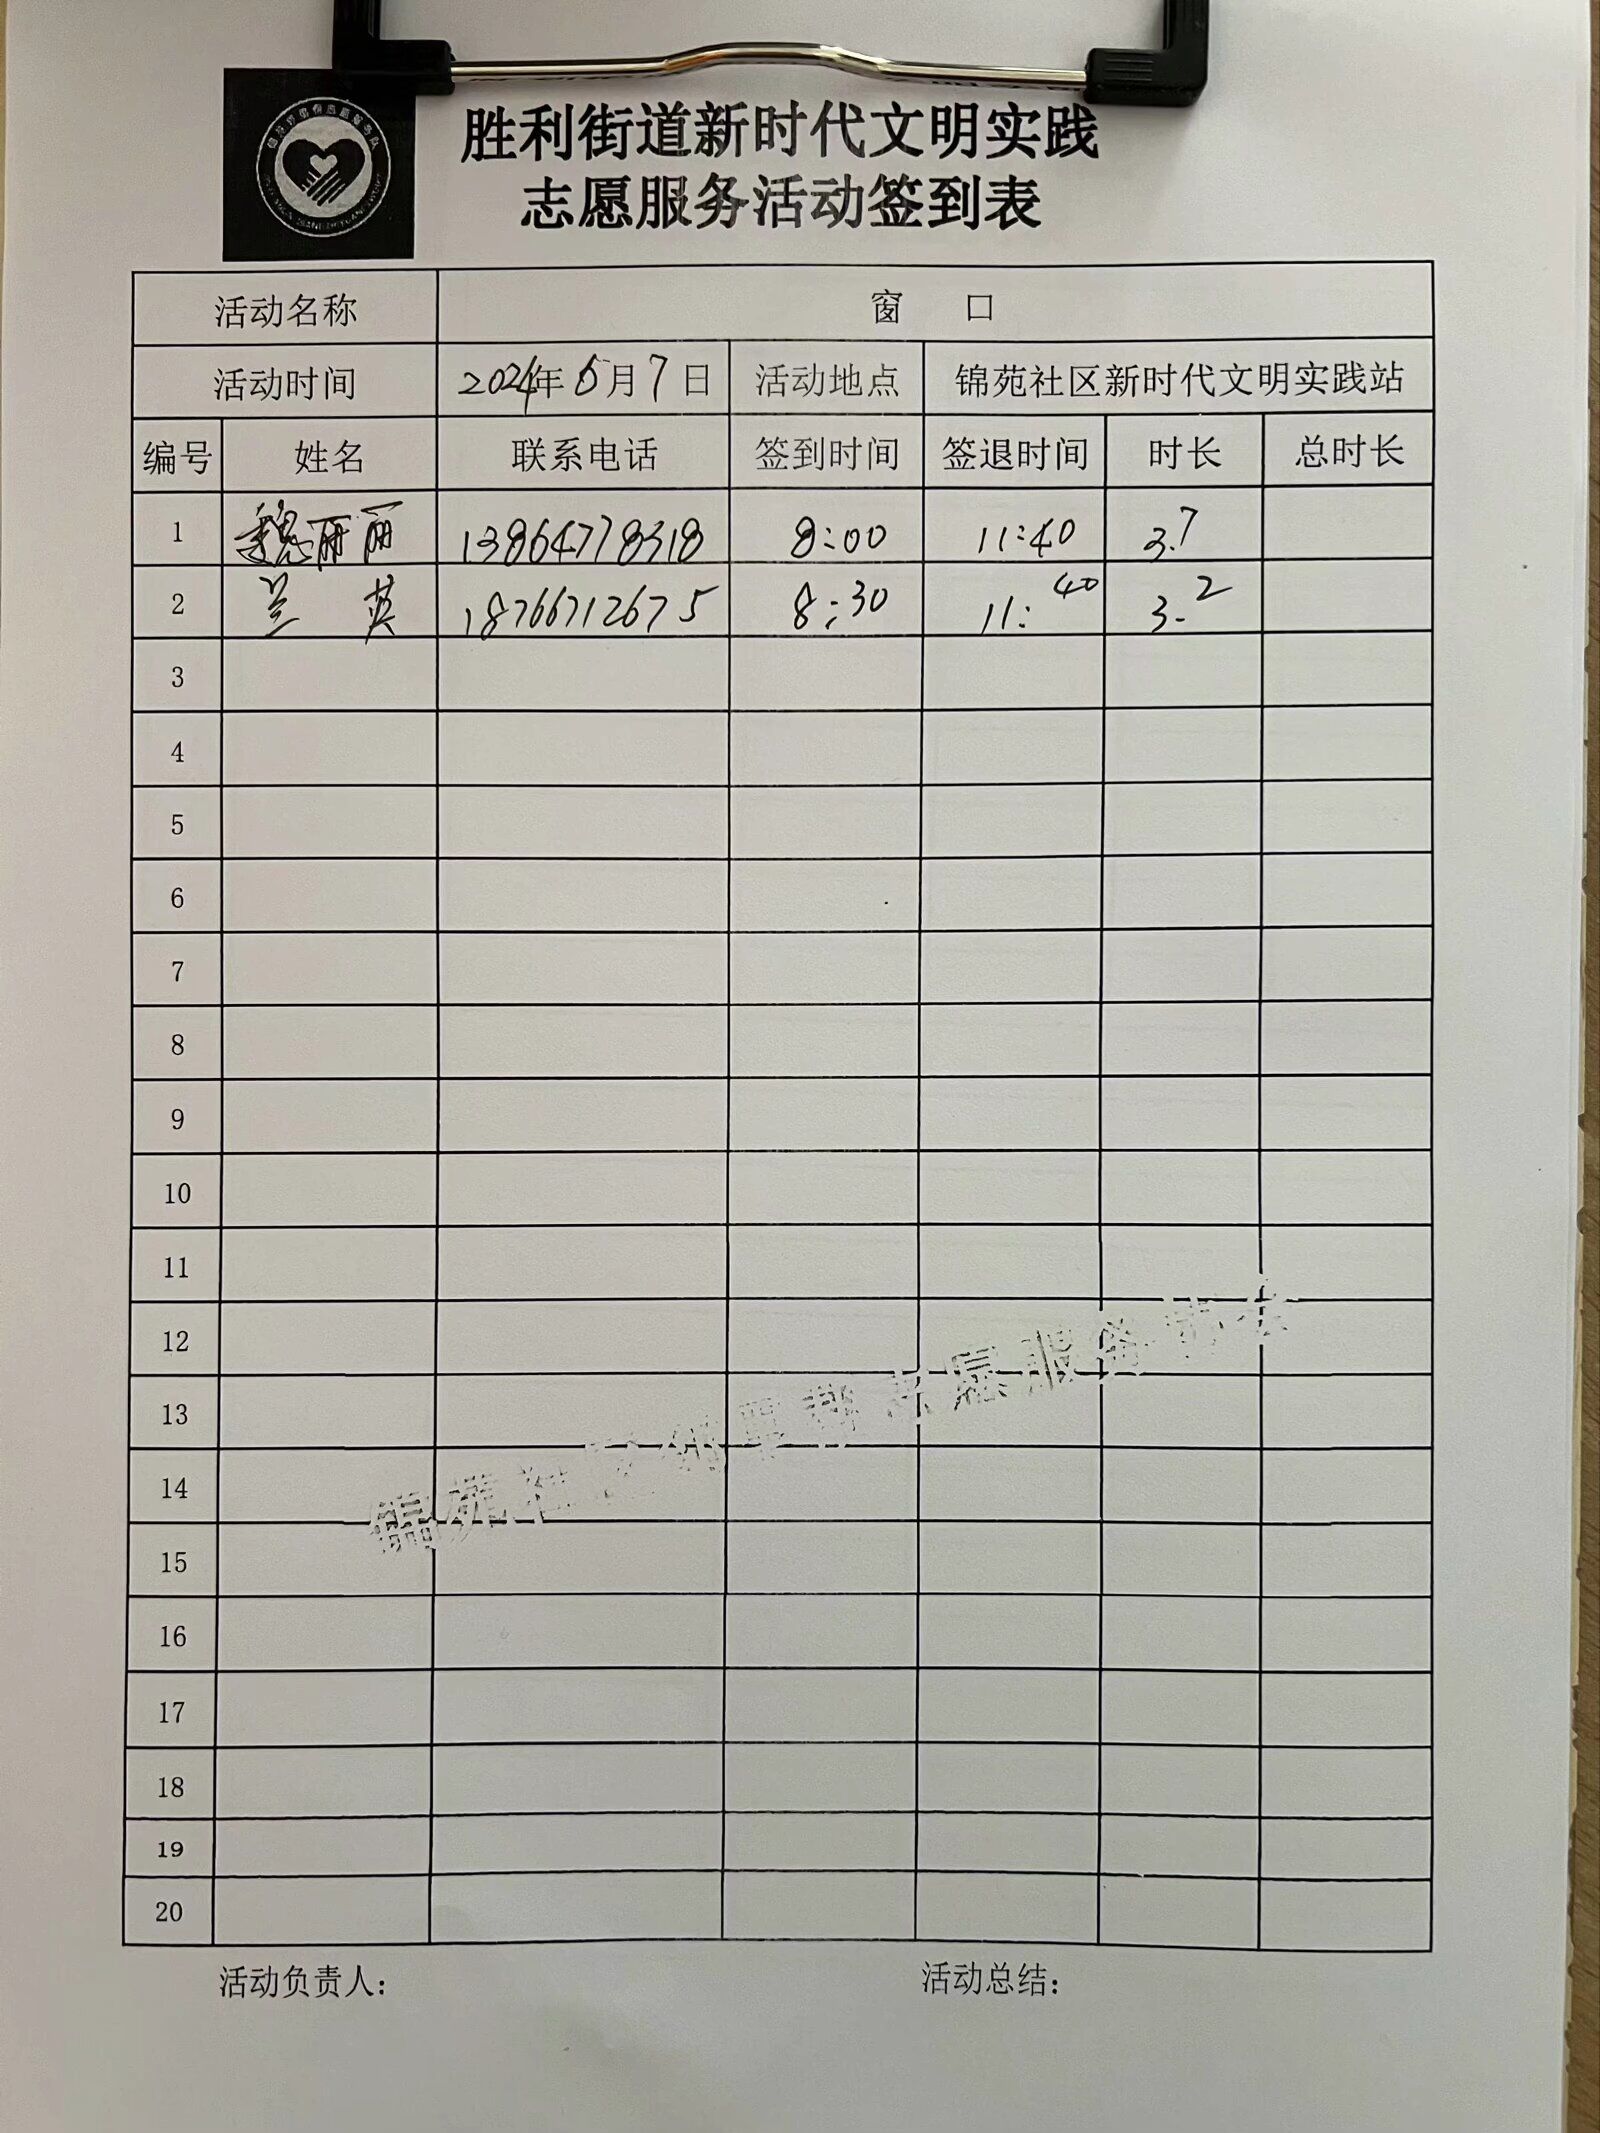 胜利街道新时代文明实践
志愿服务活动签到表
活动名称 窗 口
活动时间 2024年6月7日 活动地点 锦苑社区新时代文明实践站
编号 姓名 联系电话 签到时间 签退时间 时长 总时长
1 魏丽丽 13864778318 8:00 11:40 3.7
2 兰 英 18766712675 8:30 11:40 3.2
3
4
5
6
7
8
9
10
11
12
13
14
15
16
17
18
19
20
锦苑社区 志愿服务
活动负责人: 活动总结: